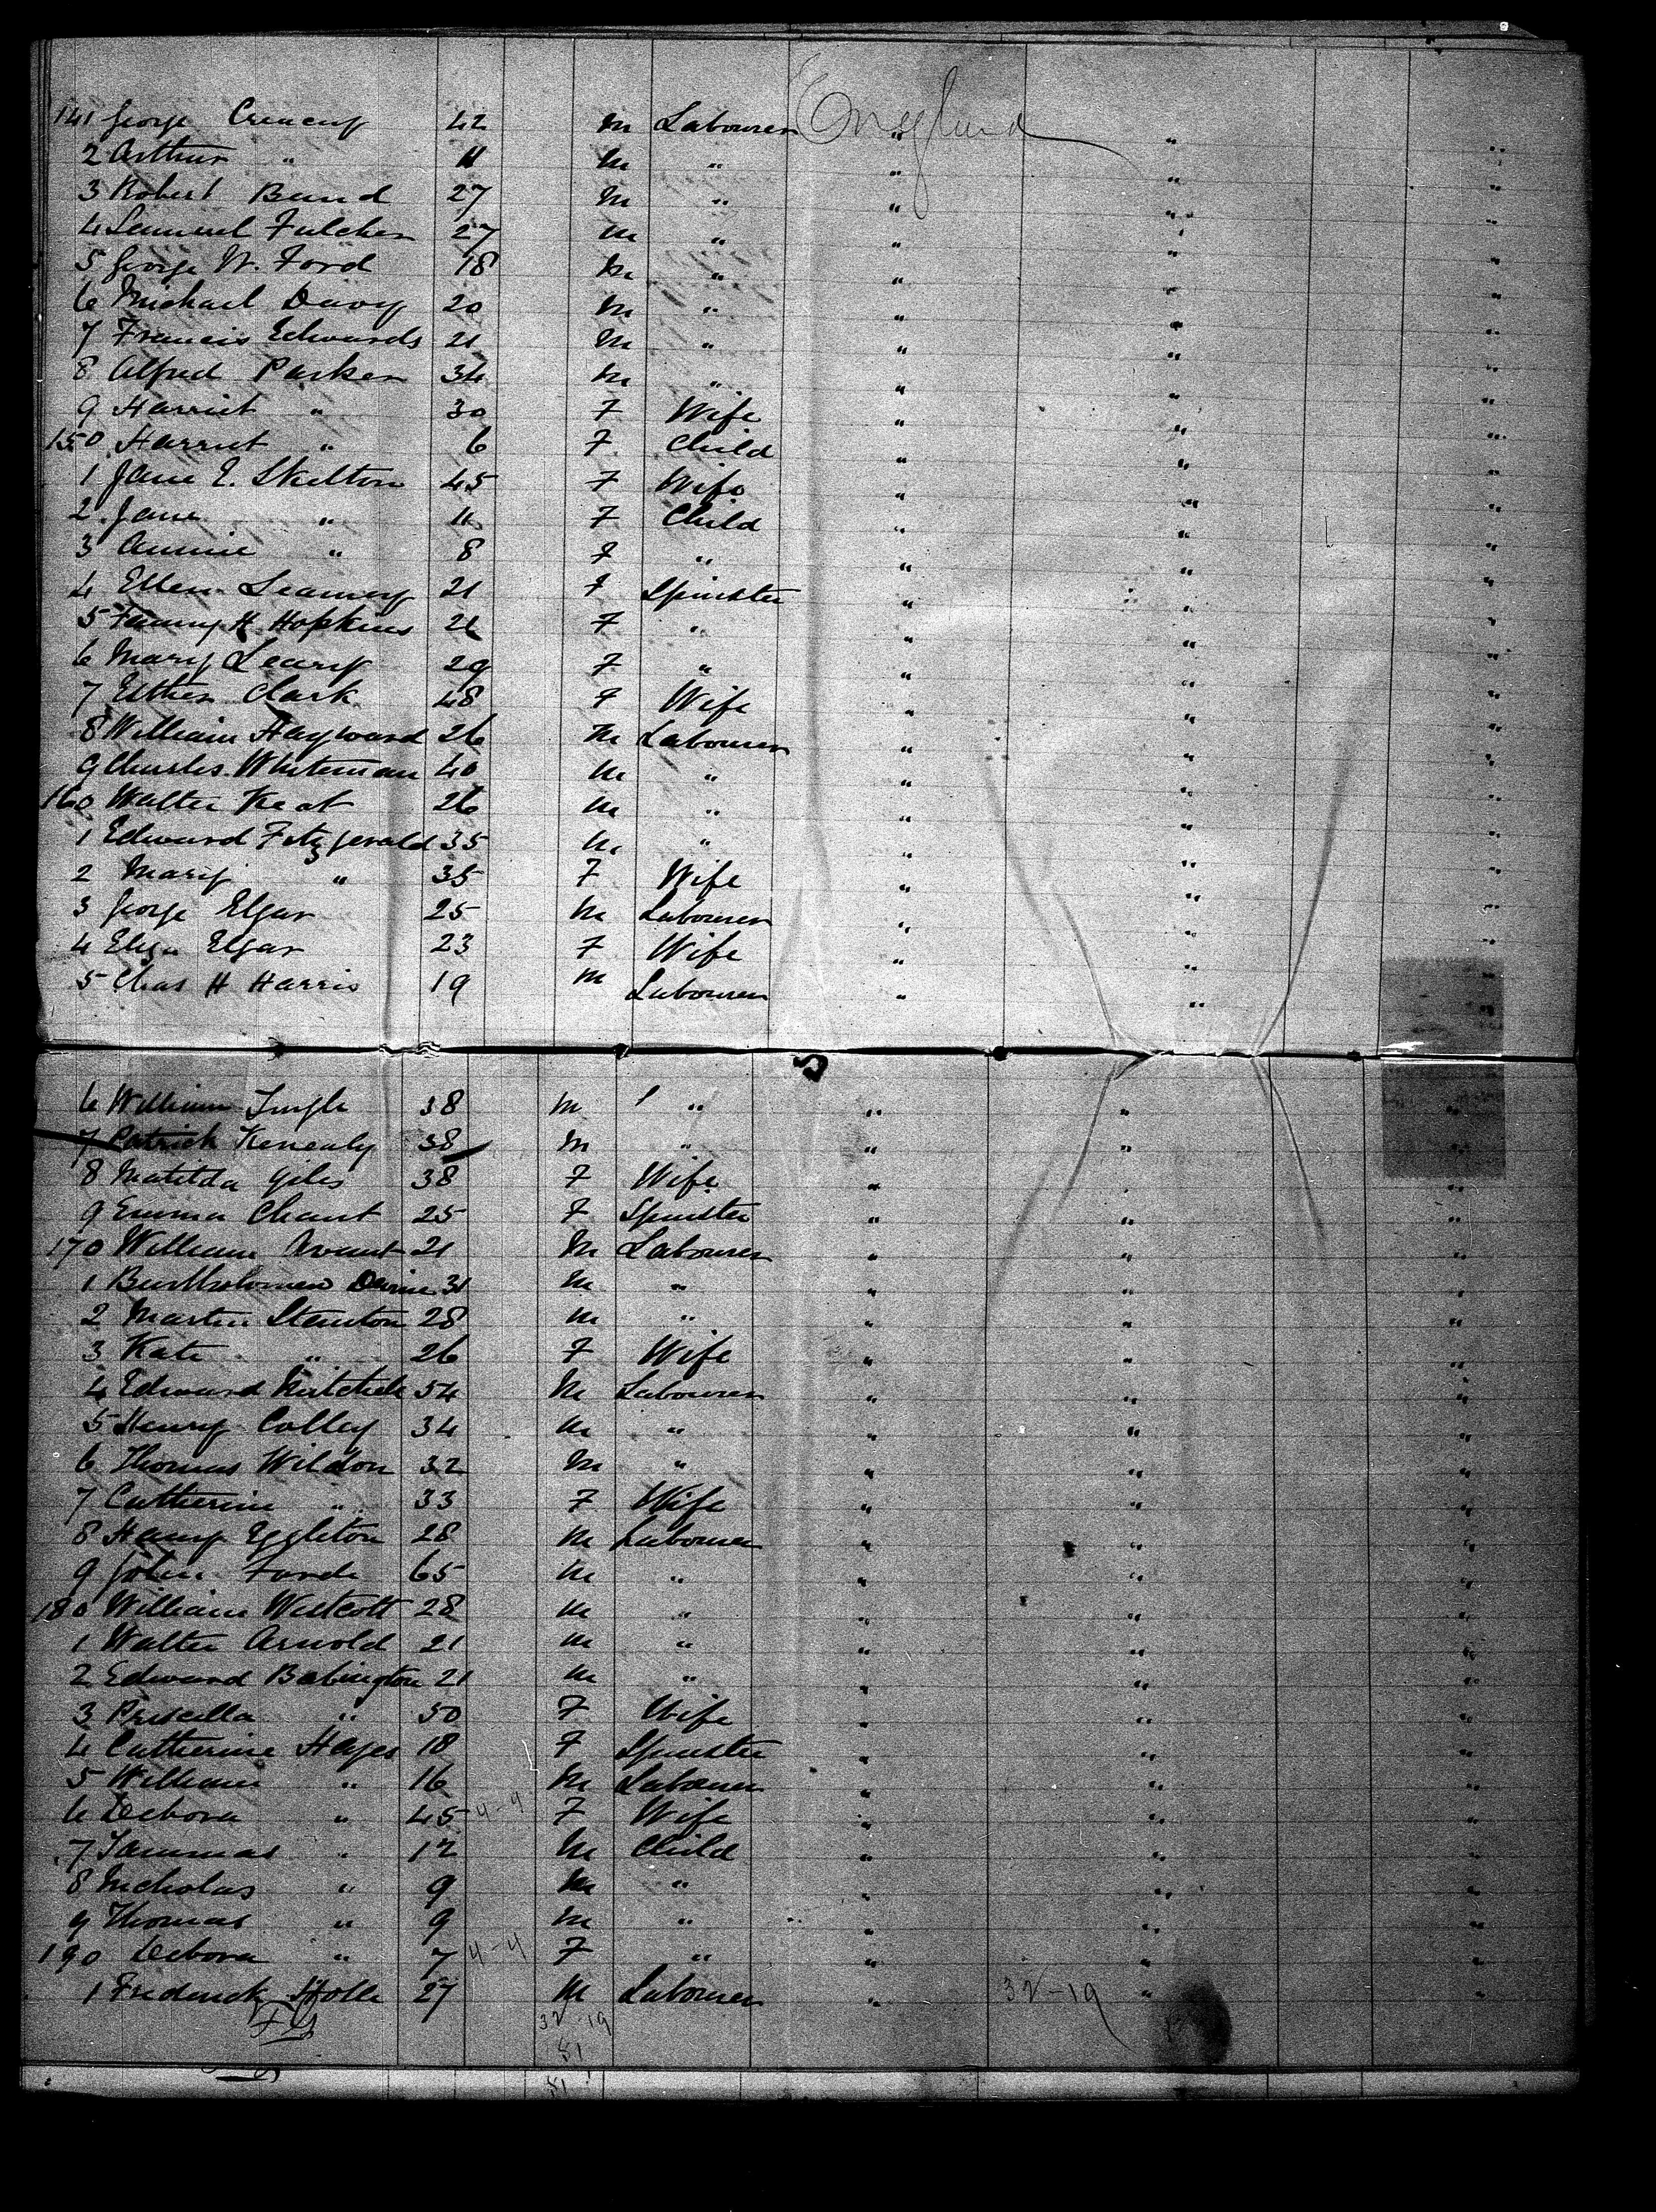 England
141 George 42 m Labourer " " "
2 Arthur " 11 m " " " "
3 Robert Bund 27 m " " " "
4 Samuel Fulcher 27 m " " " "
5 George W. Ford 18 m " " " "
6 Michael Davy 20 m " " " "
7 Francis Edwards 21 m " " " "
8 Alfred Parker 34 m " " " "
9 Harriet " 30 F Wife " " "
150 Harriet " 6 F Child " " "
1 Jane E. Skelton 45 F Wife " " "
2 Jane " 11 F Child " " "
3 Annie " 8 F " " " "
4 Ellen 21 F Spinster " " "
5 Fanny H. Hopkins 21 F " " " "
6 Mary Leary 29 F " " " "
7 Esther Clark 48 F Wife " " "
8 William Hayward 26 m Labourer " " "
9 Charles Whiteman 40 m " " " "
160 Walter Keat 26 m " " " "
1 Edward Fitzgerald 35 m " " " "
2 Mary " 35 F Wife " " "
3 George Elgar 25 m Labourer " " "
4 Eliza Elgar 23 F Wife " " "
5 Chas H Harris 19 m Labourer " " "
6 William Jingle 38 m " " " "
7 Patrick Kenealy 38 m " " " "
8 Matilda Giles 38 F Wife " " "
9 Emma Chant 25 F Spinster " " "
170 William Avant 21 m Labourer " " "
1 Bartholomew Devine 31 m " " " "
2 Martin Stanton 28 m " " " "
3 Kate " 26 F Wife " " "
4 Edward Mitchele 54 m Labourer " " "
5 Henry Colley 34 m " " " "
6 Thomas Wildon 32 m " " " "
7 Catherine " 33 F Wife " " "
8 Harry Eggleton 28 m Labourer " " "
9 John Forde 65 m " " " "
180 William Westcott 28 m " " " "
1 Walter Arnold 21 m " " " "
2 Edward Babington 21 m " " " "
3 Priscella " 50 F Wife " " "
4 Catherine Hayes 18 F Spinster " " "
5 William " 16 m Labourer " " "
6 Debora " 45 4-4 F Wife " " "
7 " 12 m Child " " "
8 Nicholas " 9 m " " " "
9 Thomas " 9 m " " " "
190 Debora " 7 4-4 F " " " "
1 Frederick 27 m Labourer " 32-19 " "
32-19
81
81